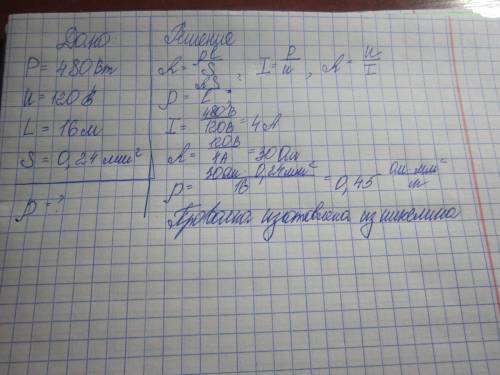 Дано
P = 480 Вт
U = 120 В
L = 16 м
S = 0,24 мм²
ρ = ?
Решение
R = ρL/S, I = P/U, R = U/I
ρ = RS/L
I = 480В/120В = 4А
R = 120В/4А = 30Ом
ρ = 30Ом · 0,24мм²/16 = 0,45 Ом·мм²/м
Проволка изготовлена из никелина